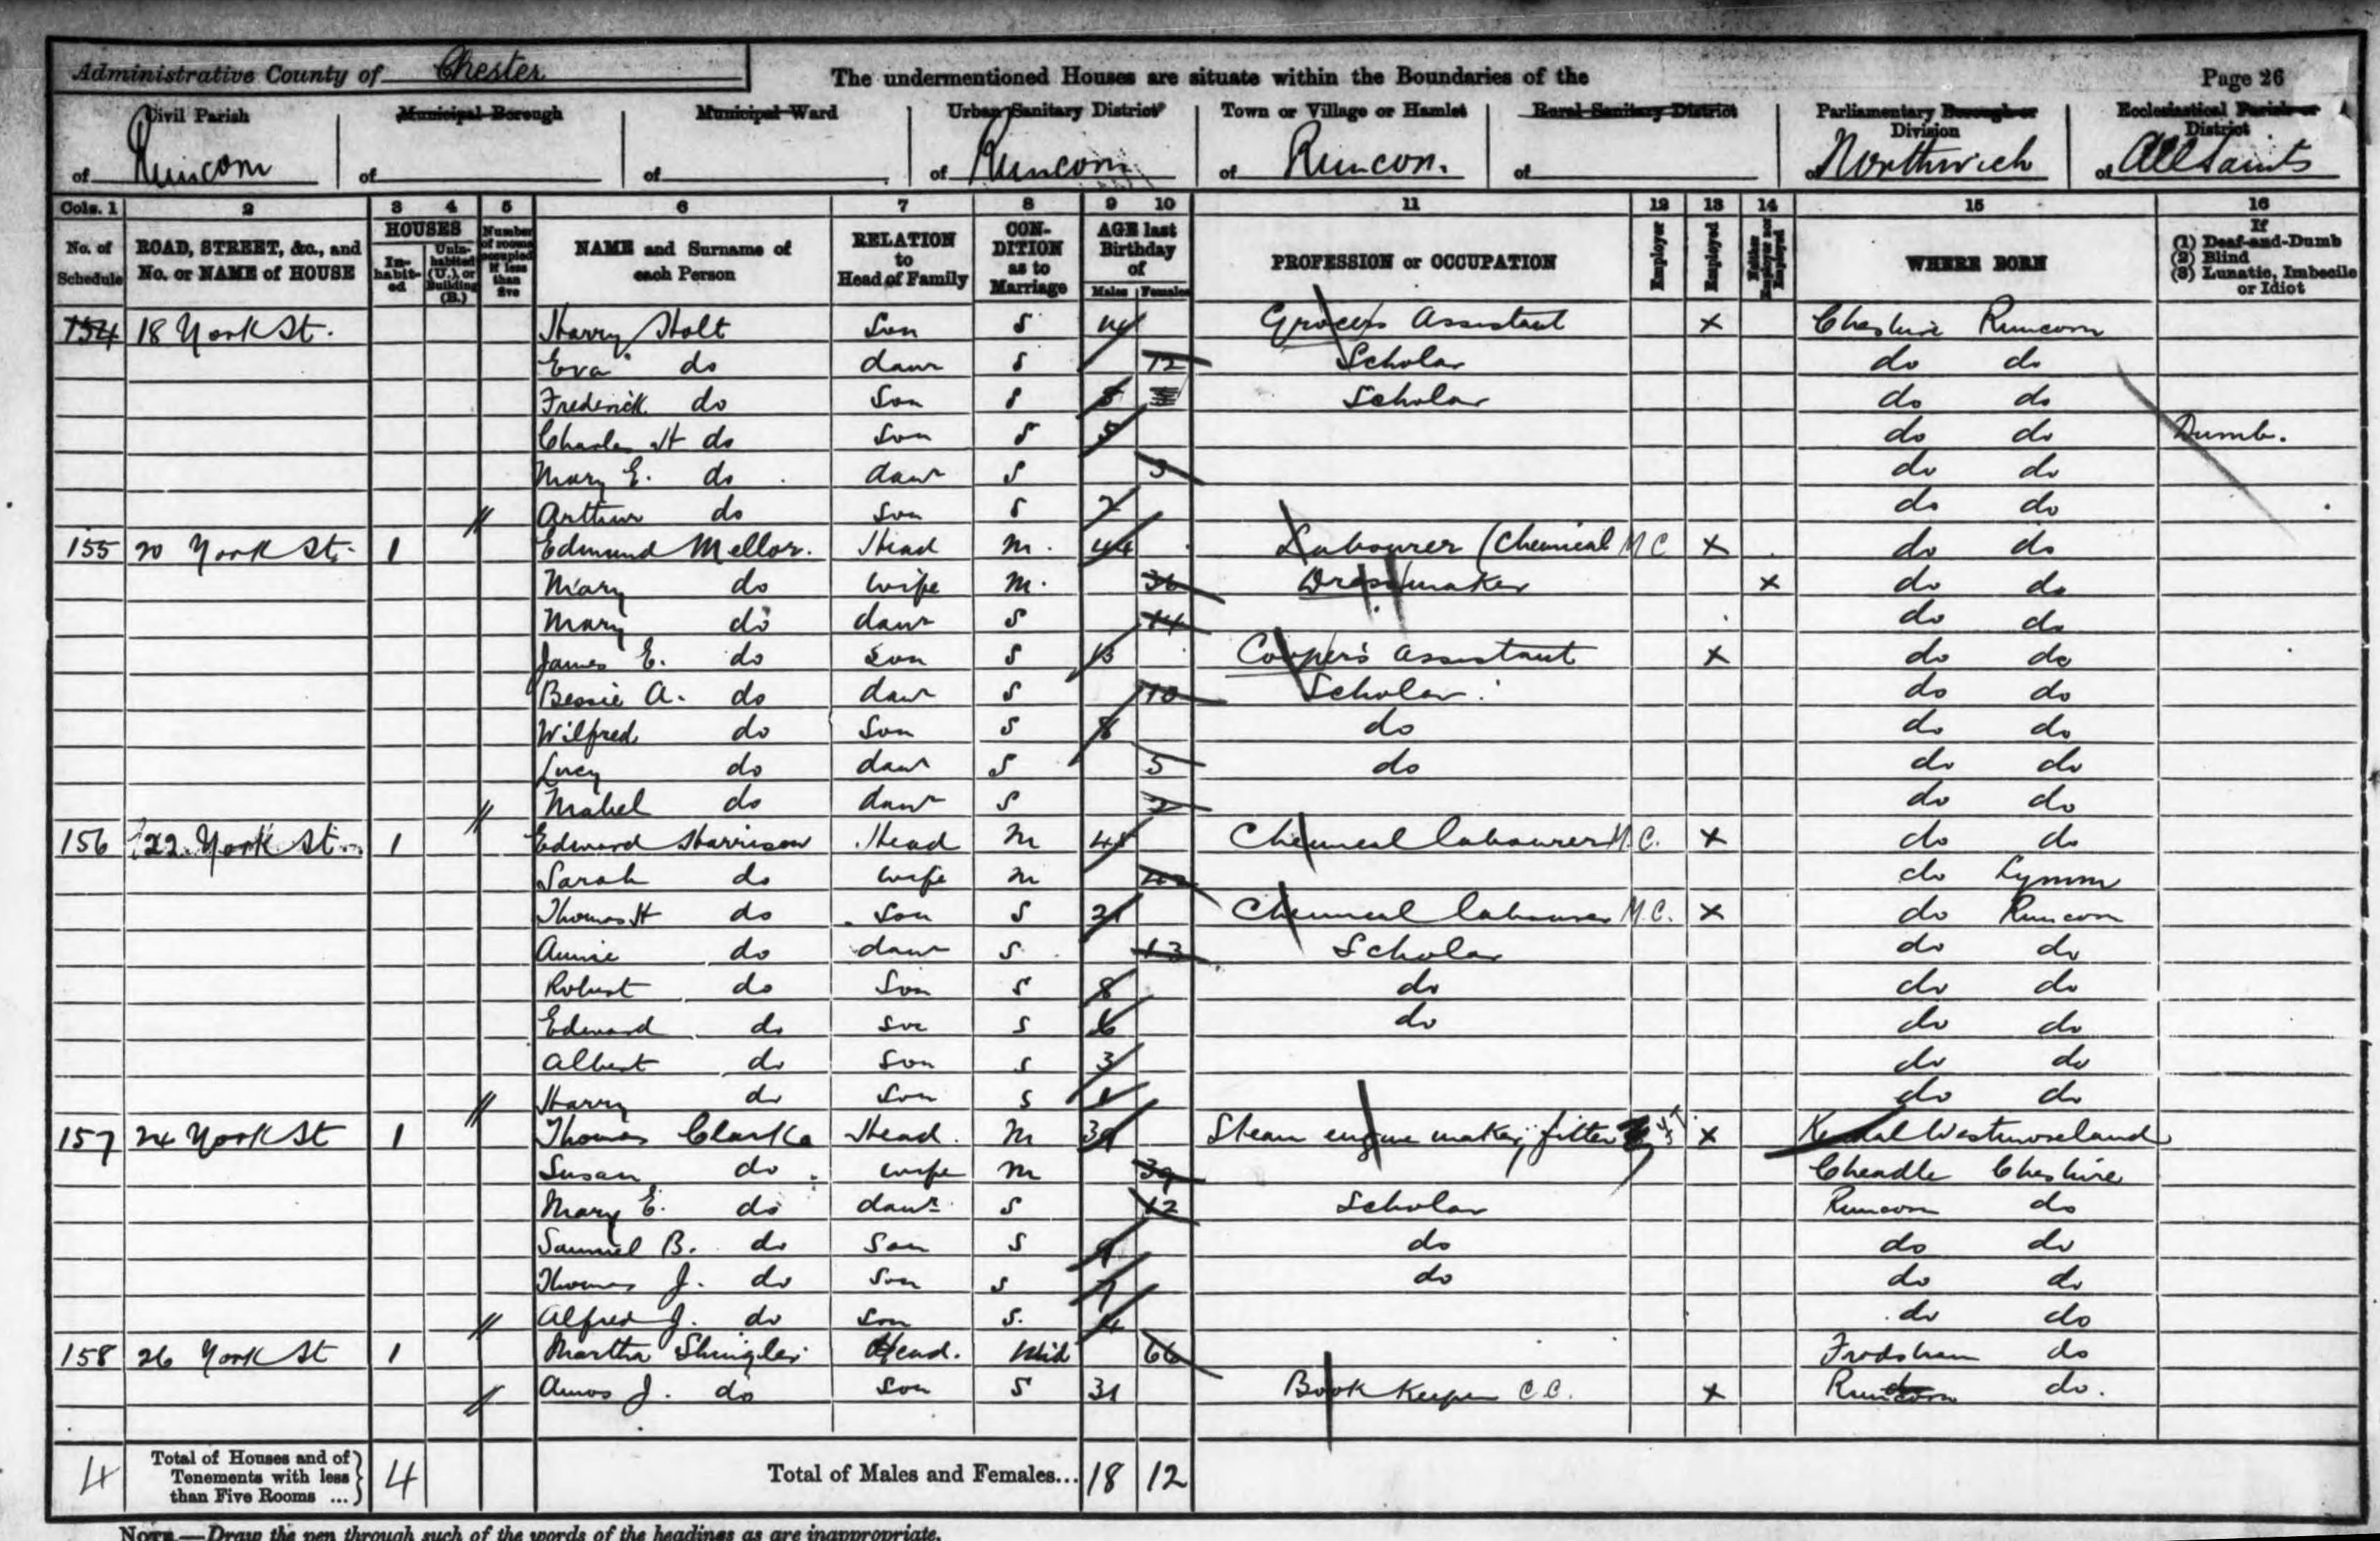 Administrative County of Chester The undermentioned Houses are situate within the Boundaries of the Page 26
Civil Parish of Runcorn Municipal Borough of Municipal Ward of Urban Sanitary District of Runcorn Town or Village or Hamlet of Runcorn. Rural Sanitary District of Parliamentary Borough or Division of Northwich Ecclesiastical Parish or District of All Saints
Cols. 1 2 3 4 5 6 7 8 9 10 11 12 13 14 15 16
No. of Schedule ROAD, STREET, &c., and No. or NAME of HOUSE HOUSES In-habit-ed Unin-habited (U.), or Building (B.) Number of rooms occupied if less than five NAME and Surname of each Person RELATION to Head of Family CON-DITION as to Marriage AGE last Birthday of Males Females PROFESSION or OCCUPATION Employer Employed Neither Employer nor Employed WHERE BORN If (1) Deaf-and-Dumb (2) Blind (3) Lunatic, Imbecile or Idiot
154 18 York St. Harry Holt Son S 14 Grocers Assistant x Cheshire Runcorn
Eva do daur S 12 Scholar do do
Frederick do Son S 8 Scholar do do
Charles H do Son S 5 do do Dumb.
Mary E. do daur S 3 do do
Arthur do Son S 2 do do
155 20 York St. 1 Edmund Mellor. Head M. 44 Labourer (Chemical M.C x do do
Mary do wife M. 36 Dressmaker x do do
Mary do daur S 14 do do
James E. do Son S 13 Cooper's Assistant x do do
Bessie A. do daur S 10 Scholar. do do
Wilfred do Son S 8 do do do
Lucy do daur S 5 do do do
Mabel do daur S 2 do do
156 22 York St. 1 Edward Harrison Head M Chemical labourer M.C. x do do
Sarah do wife M do Lymm
Thomas H do Son S 21 Chemical labourer M.C. x do Runcorn
Annie do daur S 13 Scholar do do
Robert do Son S 8 do do do
Edward do Son S 6 do do do
Albert do Son S 3 do do
Harry do Son S 1 do do
157 24 York St 1 Thomas Clarke Head. M 39 Steam engine maker, fitter x Kendal Westmoreland
Susan do wife M 39 Cheadle Cheshire
Mary E. do daur S 12 Scholar Runcorn do
Samuel B. do Son S 9 do do do
Thomas J. do Son S 7 do do do
Alfred J. do Son S. 4 do do
158 26 York St 1 Martha Shingler Head. Wid 66 Frodsham do
Amos J. do Son S 31 Book Keeper C.C. x Runcorn do.
4 Total of Houses and of Tenements with less than Five Rooms ... 4 Total of Males and Females... 18 12
NOTE.—Draw the pen through such of the words of the headings as are inappropriate.